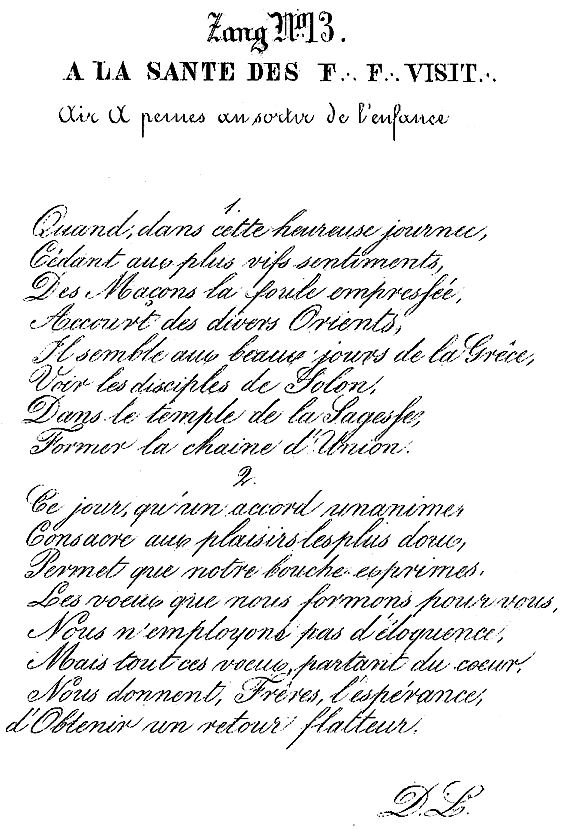 Zang No 13.
A LA SANTE DES F∴ F∴ VISIT∴
Air A peines au sortir de l'enfance
1.
Quand, dans cette heureuse journee,
Cédant aux plus vifs sentiments,
Des Maçons la foule empressée,
Accourt des divers Orients,
Il semble aux beaux jours de la Grêce,
Voir les disciples de Solon,
Dans le temple de la Sagesse,
Former la chaine d'Union.
2.
Ce jour, qu'un accord unanime,
Consacre aux plaisirs les plus doux,
Permet que notre bouche exprimes.
Les voeux que nous formons pour vous,
Nous n'employons pas d'éloquence,
Mais tout ces voeux, partant du coeur,
Nous donnent, Frères, l'espérance,
d'Obtenir un retour flatteur.
D. L.